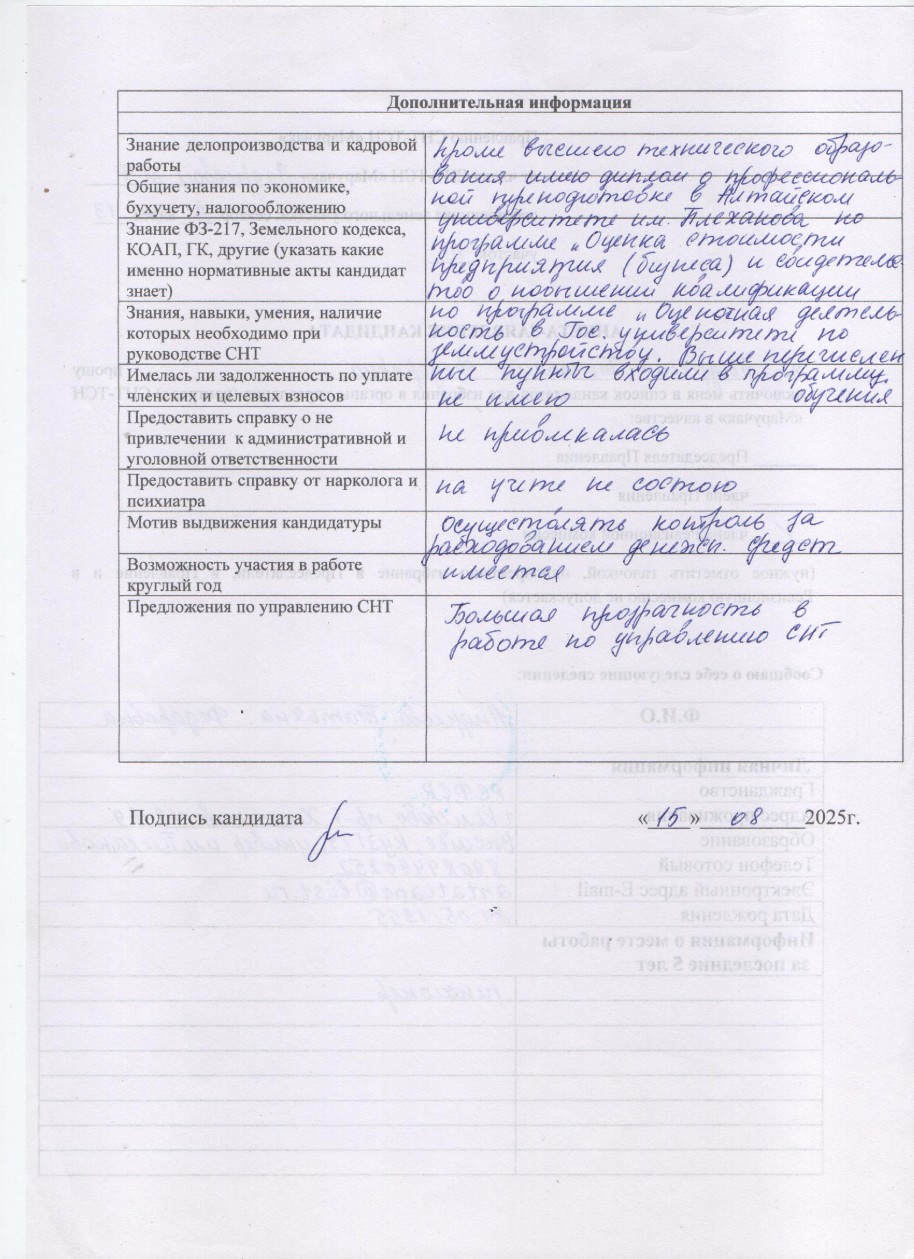 Дополнительная информация
Знание делопроизводства и кадровой
работы
кроме высшего технического образо-
вания имею диплом о профессиональ-
Общие знания по экономике,
бухучету, налогообложению
ной переподготовке в Алтайском
университете им. Плеханова по
Знание ФЗ-217, Земельного кодекса,
КОАП, ГК, другие (указать какие
именно нормативные акты кандидат
знает)
программе „Оценка стоимости
предприятия (бизнеса) и свидетельс-
тво о повышении квалификации
Знания, навыки, умения, наличие
которых необходимо при
руководстве СНТ
по программе „Оценочная деятель-
ность в Гос. университете по
землеустройству. Выше перечислен
Имелась ли задолженность по уплате
членских и целевых взносов
ные пункты входили в программу
обучения
не имею
Предоставить справку о не
привлечении к административной и
уголовной ответственности
не привлкалась
Предоставить справку от нарколога и
психиатра
на учете не состою
Мотив выдвижения кандидатуры
осуществлять контроль за
расходованием денежн. средств
Возможность участия в работе
круглый год
имеется
Предложения по управлению СНТ
Большая прозрачность в
работе по управлению СНТ
Подпись кандидата
« 15 » 08 2025г.